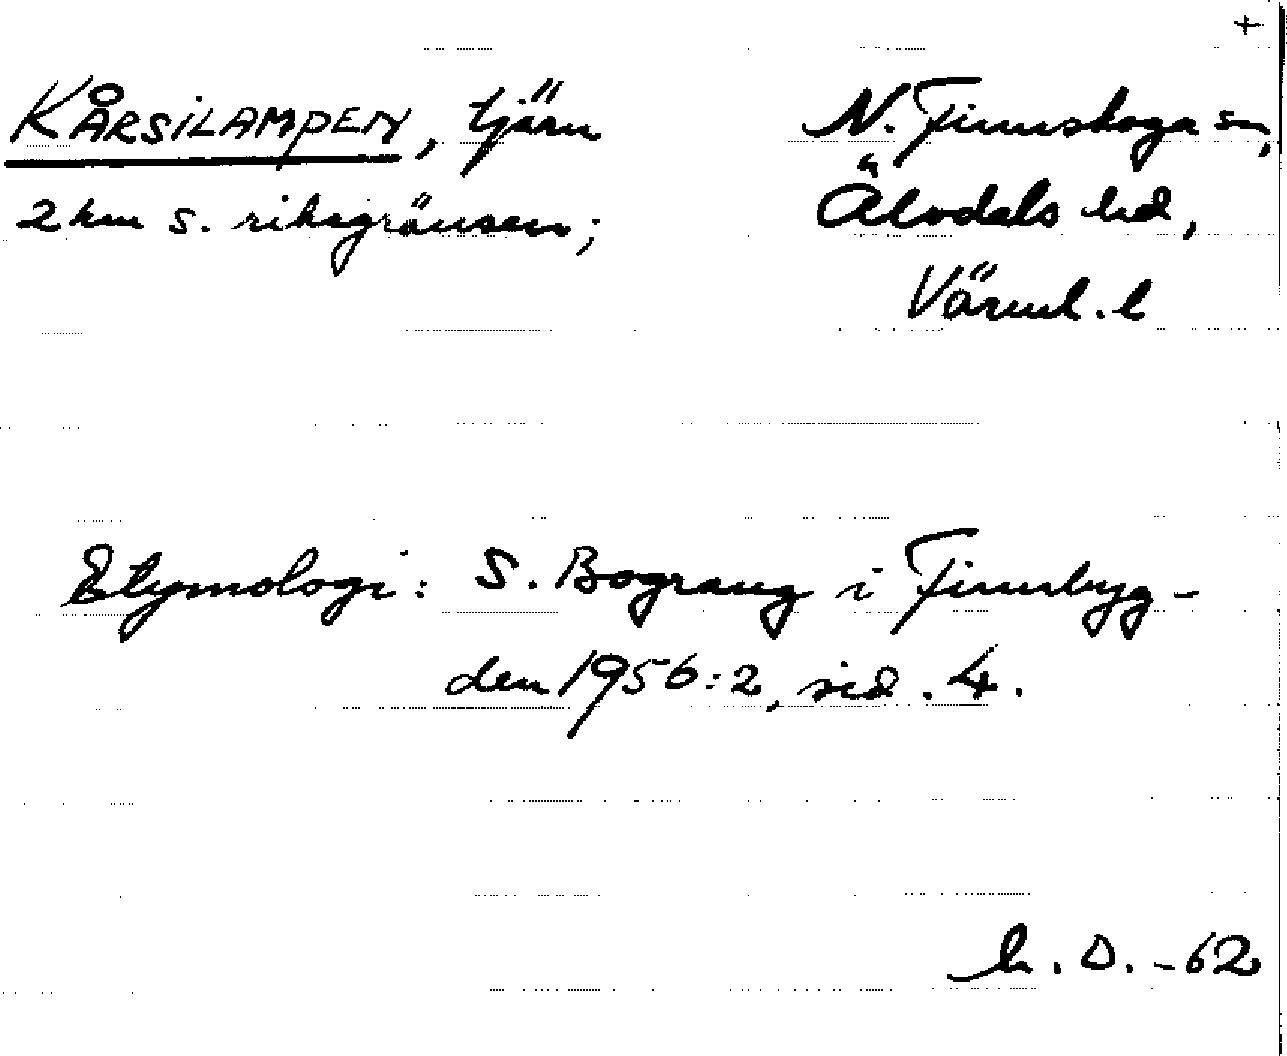 +
KÅRSILAMPEN, tjärn
2 km s. riksgränsen;
N. Finnskoga sn,
Älvdals hd,
Värml. l
Etymologi: S. Bograng i Finnbyg-
den 1956:2, sid. 4.
h. O. -62